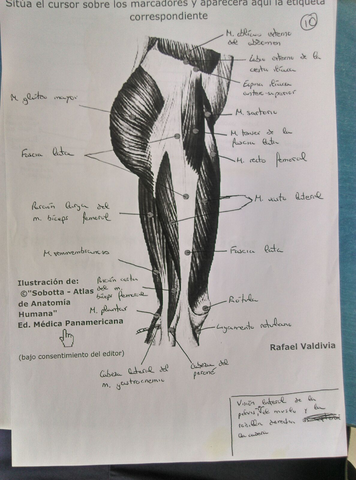 Sitúa el cursor sobre los marcadores y aparecerá aquí la etiqueta
correspondiente
10
M. oblicuo externo
del abdomen
Labio externo de la
cresta ilíaca
Espina ilíaca
antero superior
M. glúteo mayor
M. sartorio
M. tensor de la
fascia lata
Fascia lata
M. recto femoral
Porción larga del
m. bíceps femoral
M. vasto lateral
M. semimembranoso
Fascia lata
Ilustración de:
©"Sobotta - Atlas
de Anatomía
Humana"
Ed. Médica Panamericana
Porción corta
del m.
bíceps femoral
M. plantar
Rótula
Ligamento rotuliano
(bajo consentimiento del editor)
Rafael Valdivia
Cabeza lateral del
m. gastrocnemio
Cabeza del
peroné
Visión lateral de la
de muslo y la
rodilla derecha